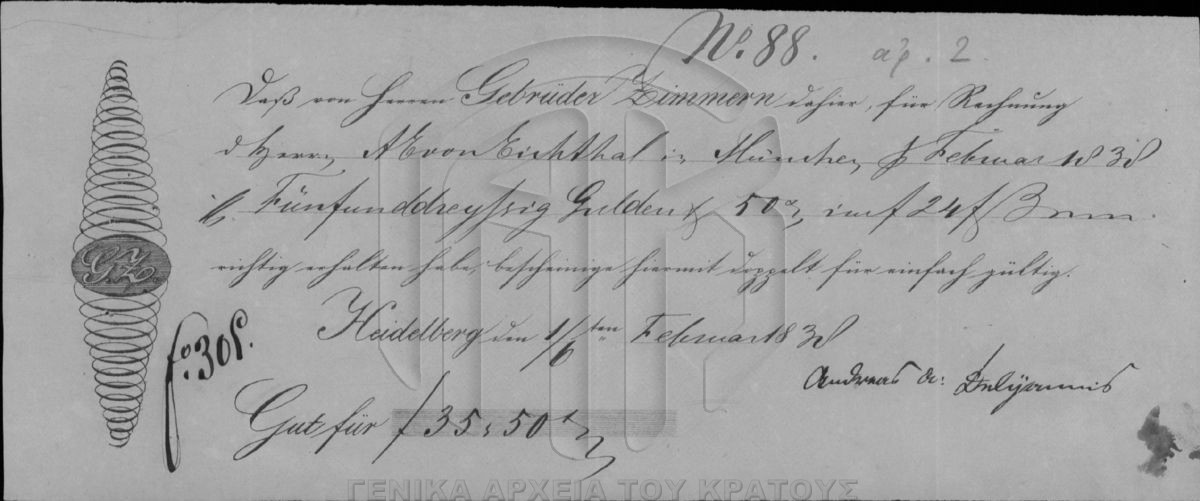 No. 88. αρ. 2
Daß von Herren Gebrüder Zimmern dahier, für Rechnung
d Herrn A E von Eichthal in München Februar 1838
Fünfunddreyssig Gulden & 50 im f 24 f
richtig erhalten habe, bescheinige hiermit doppelt für einfach gültig.
G Z
Heidelberg den 1/6 ten Februar 1838
fo. 308.
Andreas A: Delÿannis
Gut für f 35, 50 x
ΓΕΝΙΚΑ ΑΡΧΕΙΑ ΤΟΥ ΚΡΑΤΟΥΣ